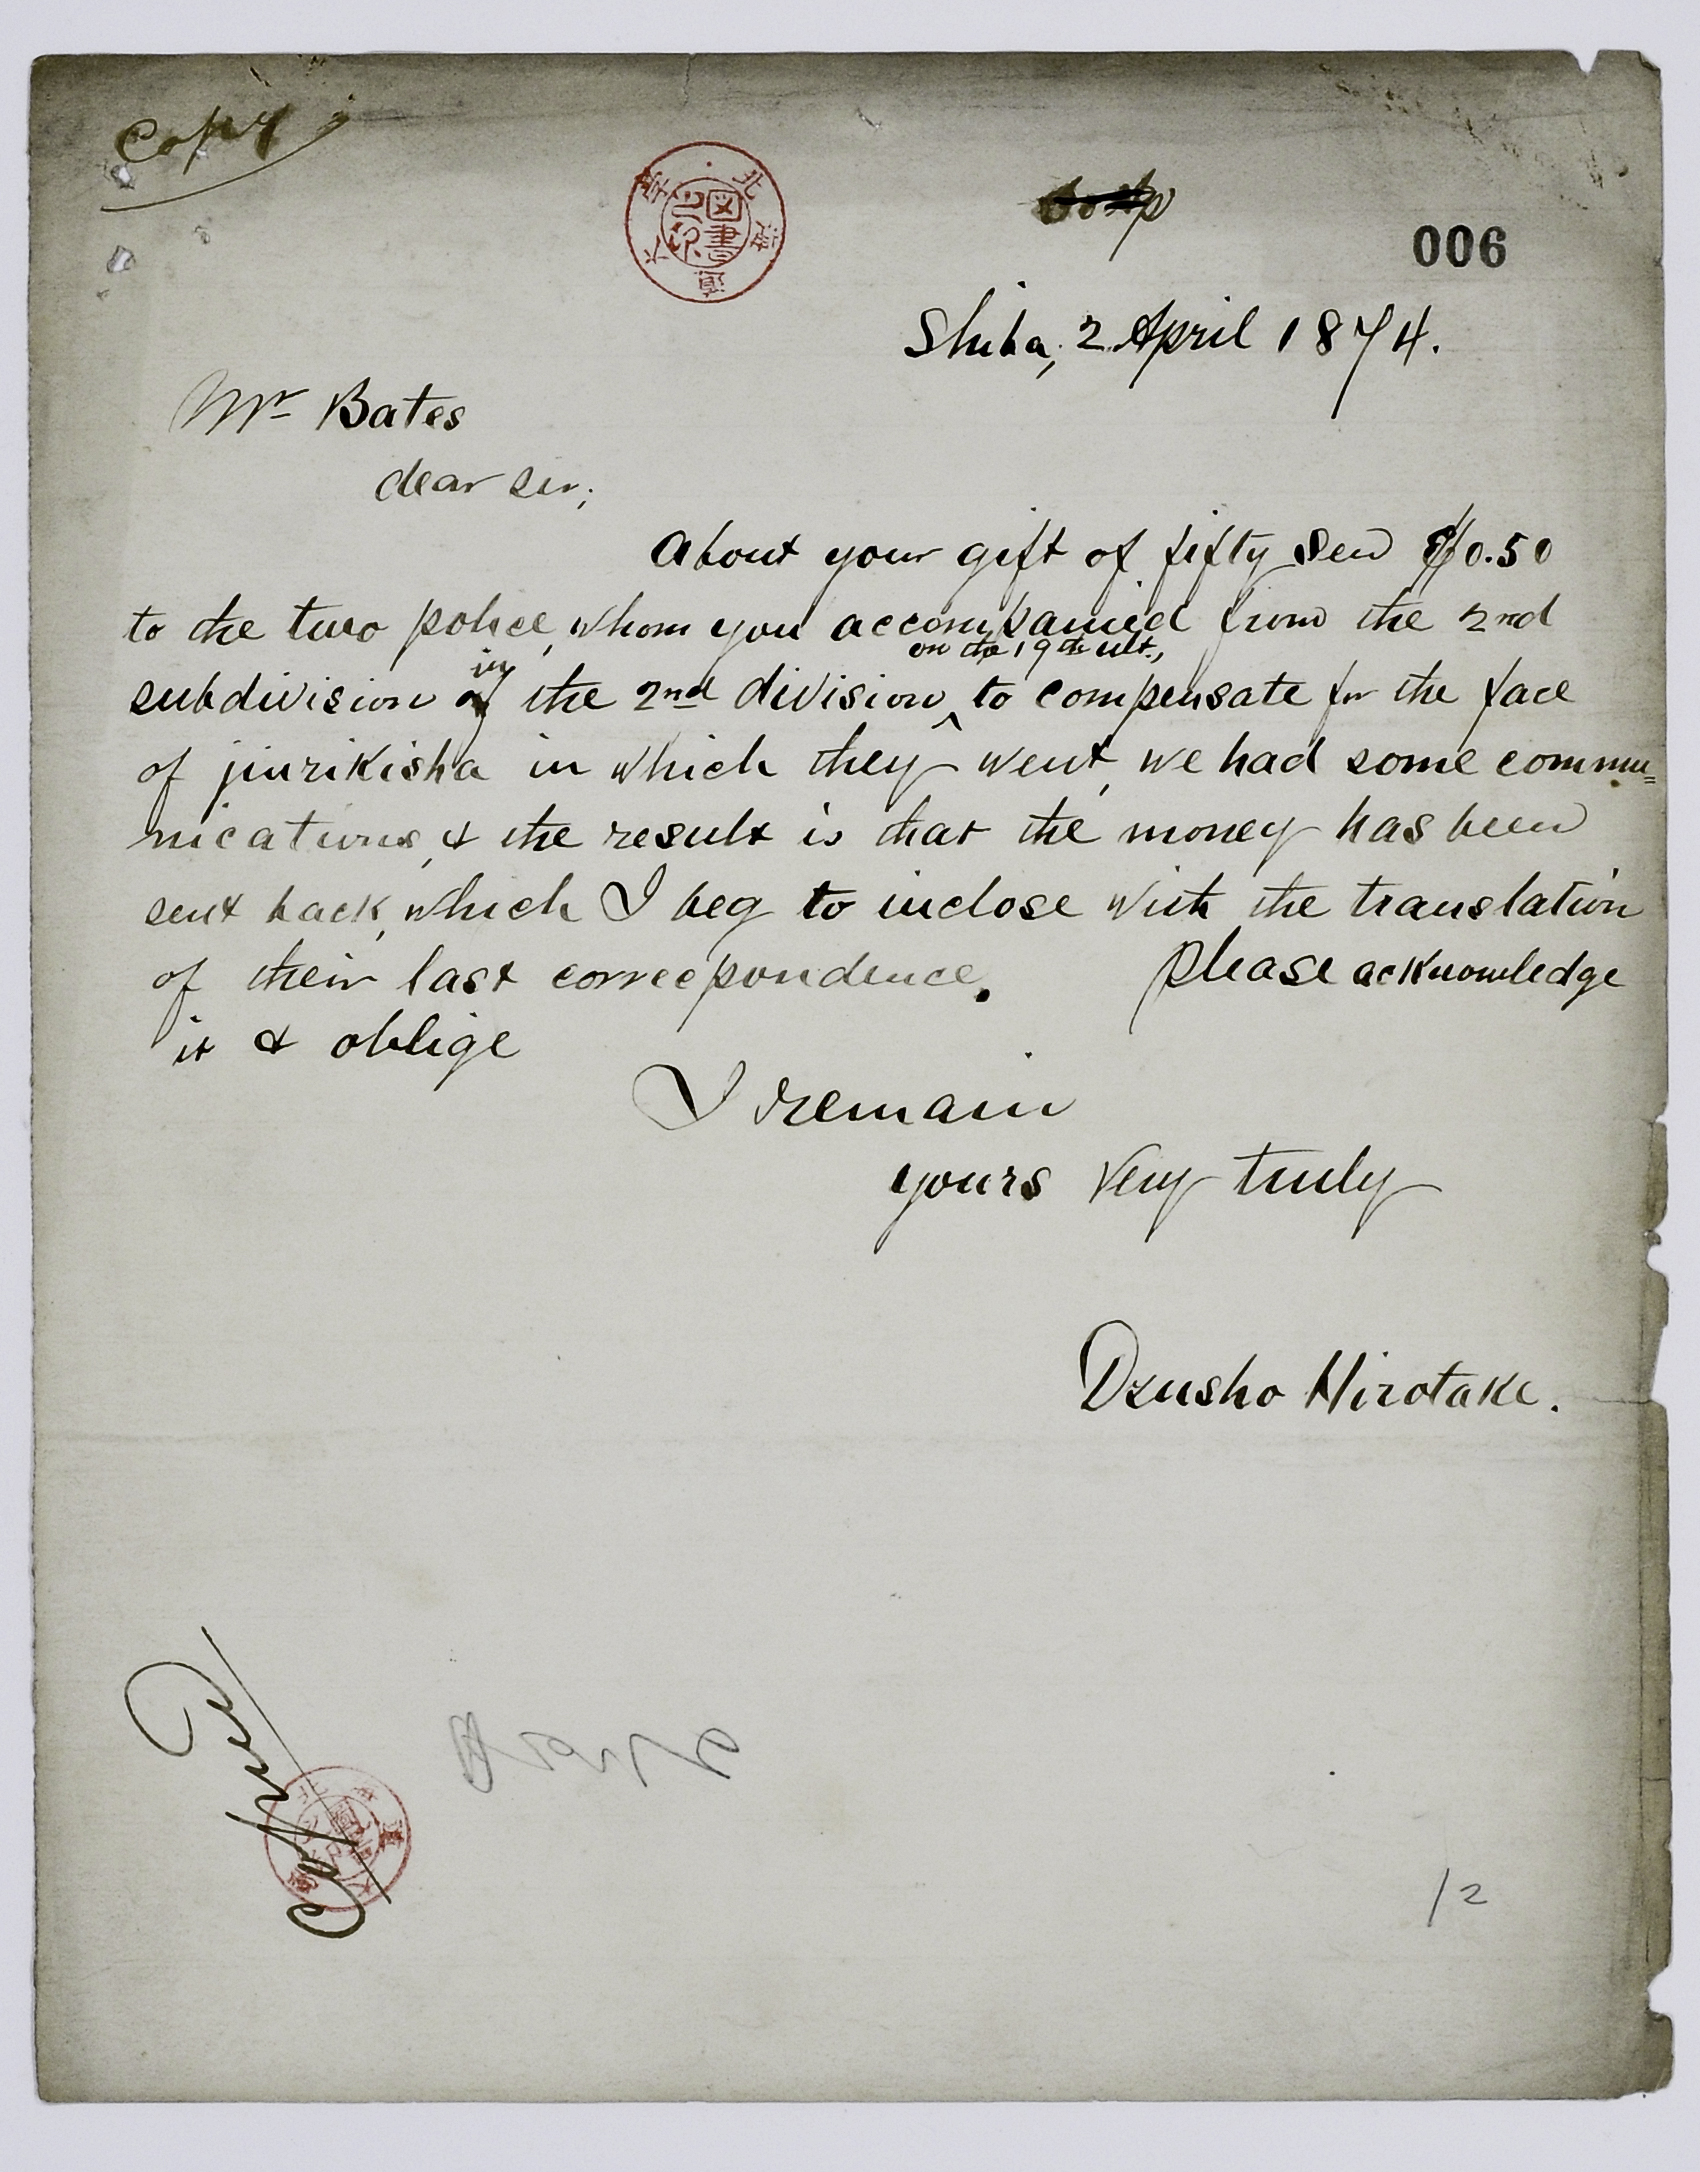 Copy
006
Shiba, 2 April 1874.
Mr Bates
dear sir;
About your gift of fifty Sen $0.50
to the two police, whom you accompanied from the 2nd
on the 19th ult.,
in
subdivision of the 2nd division, to compensate for the face
of jinrikisha in which they went, we had some commu=
nications, & the result is that the money has been
sent back, which I beg to inclose with the translation
of their last correcpondence. please acknowledge
it & oblige
I remain
yours very truly
Dzusho Hirotake.
12